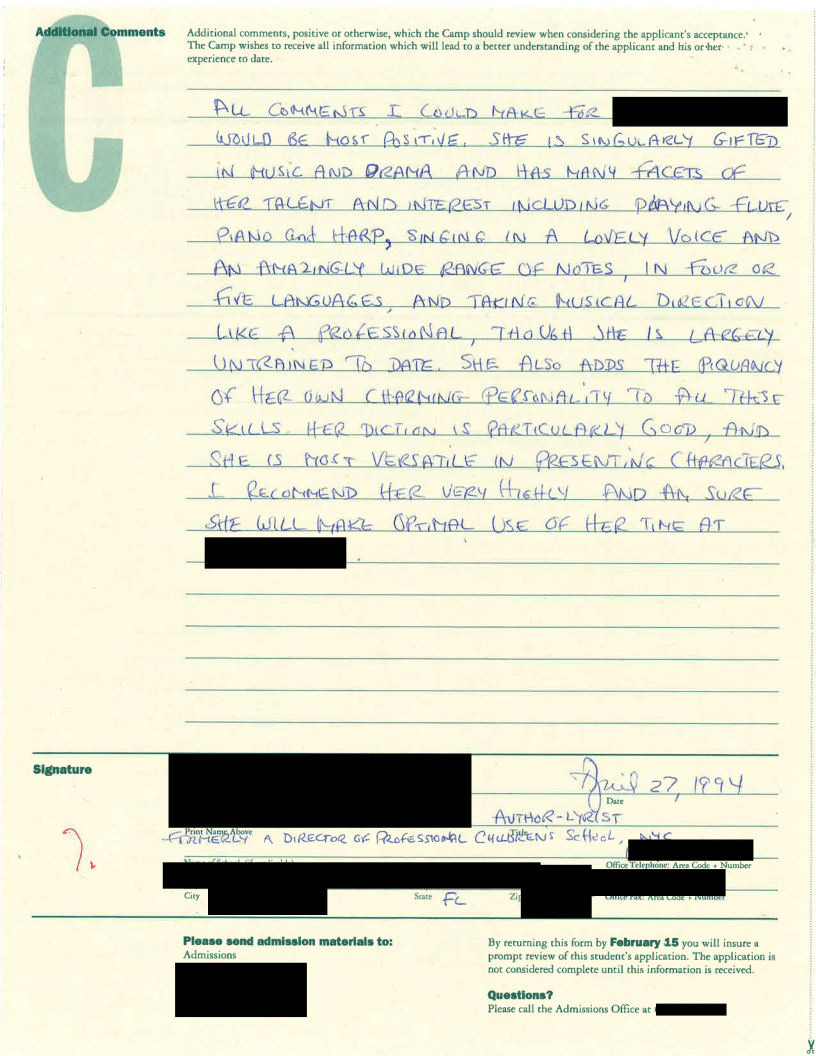 Additional Comments
Additional comments, positive or otherwise, which the Camp should review when considering the applicant's acceptance.
The Camp wishes to receive all information which will lead to a better understanding of the applicant and his or her
experience to date.
C
ALL COMMENTS I COULD MAKE FOR
WOULD BE MOST POSITIVE. SHE IS SINGULARLY GIFTED
IN MUSIC AND DRAMA AND HAS MANY FACETS OF
HER TALENT AND INTEREST INCLUDING PLAYING FLUTE,
PIANO and HARP, SINGING IN A LOVELY VOICE AND
AN AMAZINGLY WIDE RANGE OF NOTES, IN FOUR OR
FIVE LANGUAGES, AND TAKING MUSICAL DIRECTION
LIKE A PROFESSIONAL, THOUGH SHE IS LARGELY
UNTRAINED TO DATE. SHE ALSO ADDS THE PIQUANCY
OF HER OWN CHARMING PERSONALITY TO ALL THESE
SKILLS. HER DICTION IS PARTICULARLY GOOD, AND
SHE IS MOST VERSATILE IN PRESENTING CHARACTERS.
I RECOMMEND HER VERY HIGHLY AND AM SURE
SHE WILL MAKE OPTIMAL USE OF HER TIME AT
.
Signature
April 27, 1994
Date
AUTHOR-LYRIST
Print Name Above Title
FORMERLY A DIRECTOR OF PROFESSIONAL CHILDRENS SCHOOL, NYC
Office Telephone: Area Code + Number
City State FL Zip
Office Fax: Area Code + Number
Please send admission materials to:
Admissions
By returning this form by February 15 you will insure a
prompt review of this student's application. The application is
not considered complete until this information is received.
Questions?
Please call the Admissions Office at